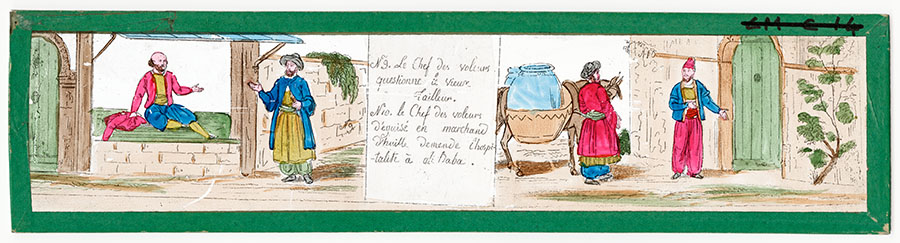 N9. Le Chef des voleurs
questionne le vieux
Tailleur.
N10. le Chef des voleurs
déguisé en marchand
d'huile demande l'hospi-
talité à ali Baba.